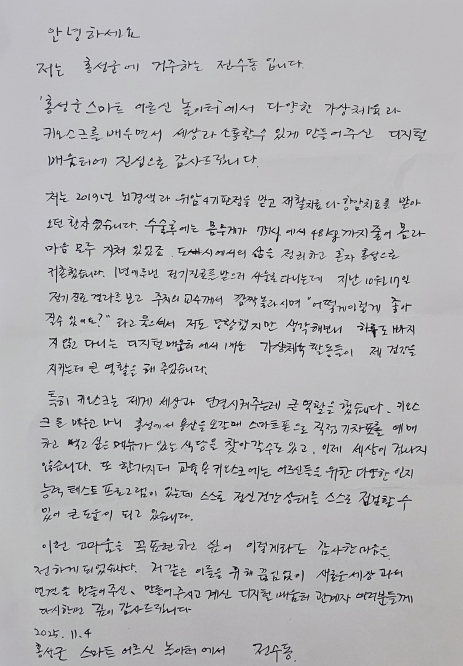 안녕하세요
저는 홍성군에 거주하는 전수동 입니다.
'홍성군 스마트 어르신 놀이터'에서 다양한 가상체육과
키오스크를 배우면서 세상과 소통할수 있게 만들어주신 디지털
배움터에 진심으로 감사드립니다.
저는 2019년 뇌경색과 위암4기판정을 받고 재활치료와 항암치료를 받아
오던 환자였습니다. 수술후에는 몸무게가 78kg에서 48kg까지 줄어 몸과
마음 모두 지쳐 있었죠. 도시에서의 삶을 정리하고 혼자 홍성으로
귀촌했습니다. 1년에 두번 정기진료를 받으러 서울로 다니는데 지난 10월17일
정기진료 결과를 보고 주치의 교수께서 깜짝놀라시며 "어떻게 이렇게 좋아
질수 있어요?" 라고 물으셔서 저도 당황했지만 생각해보니 하루도 빠지
지 않고 다니는 디지털 배움터에서 배운 가상체육 활동들이 제 건강을
지키는데 큰 역할을 해 주었습니다.
특히 키오스크는 제게 세상과 연결시켜주는데 큰 역할을 했습니다. 키오스
크를 배우고 나니 홍성에서 용산을 오갈때 스마트폰으로 직접 기차표를 예매
하고 먹고 싶은 메뉴가 있는 식당을 찾아갈수도 있고, 이제 세상이 겁나지
않습니다. 또 한가지더 교육용 키오스크에는 어르신들을 위한 다양한 인지
능력 테스트 프로그램이 있는데 스스로 정신건강 상태를 스스로 점검할 수
있어 큰 도움이 되고 있습니다.
이런 고마움을 꼭 표현하고 싶어 이렇게라도 감사한 마음을
전하게 되었습니다. 저 같은 이들을 위해 끊임없이 새로운 세상과의
연결을 만들어주신, 만들어주시고 계신 디지털 배움터 관계자 여러분들께
다시한번 깊이 감사드립니다
2025. 11. 4
홍성군 스마트 어르신 놀이터에서 전수동.